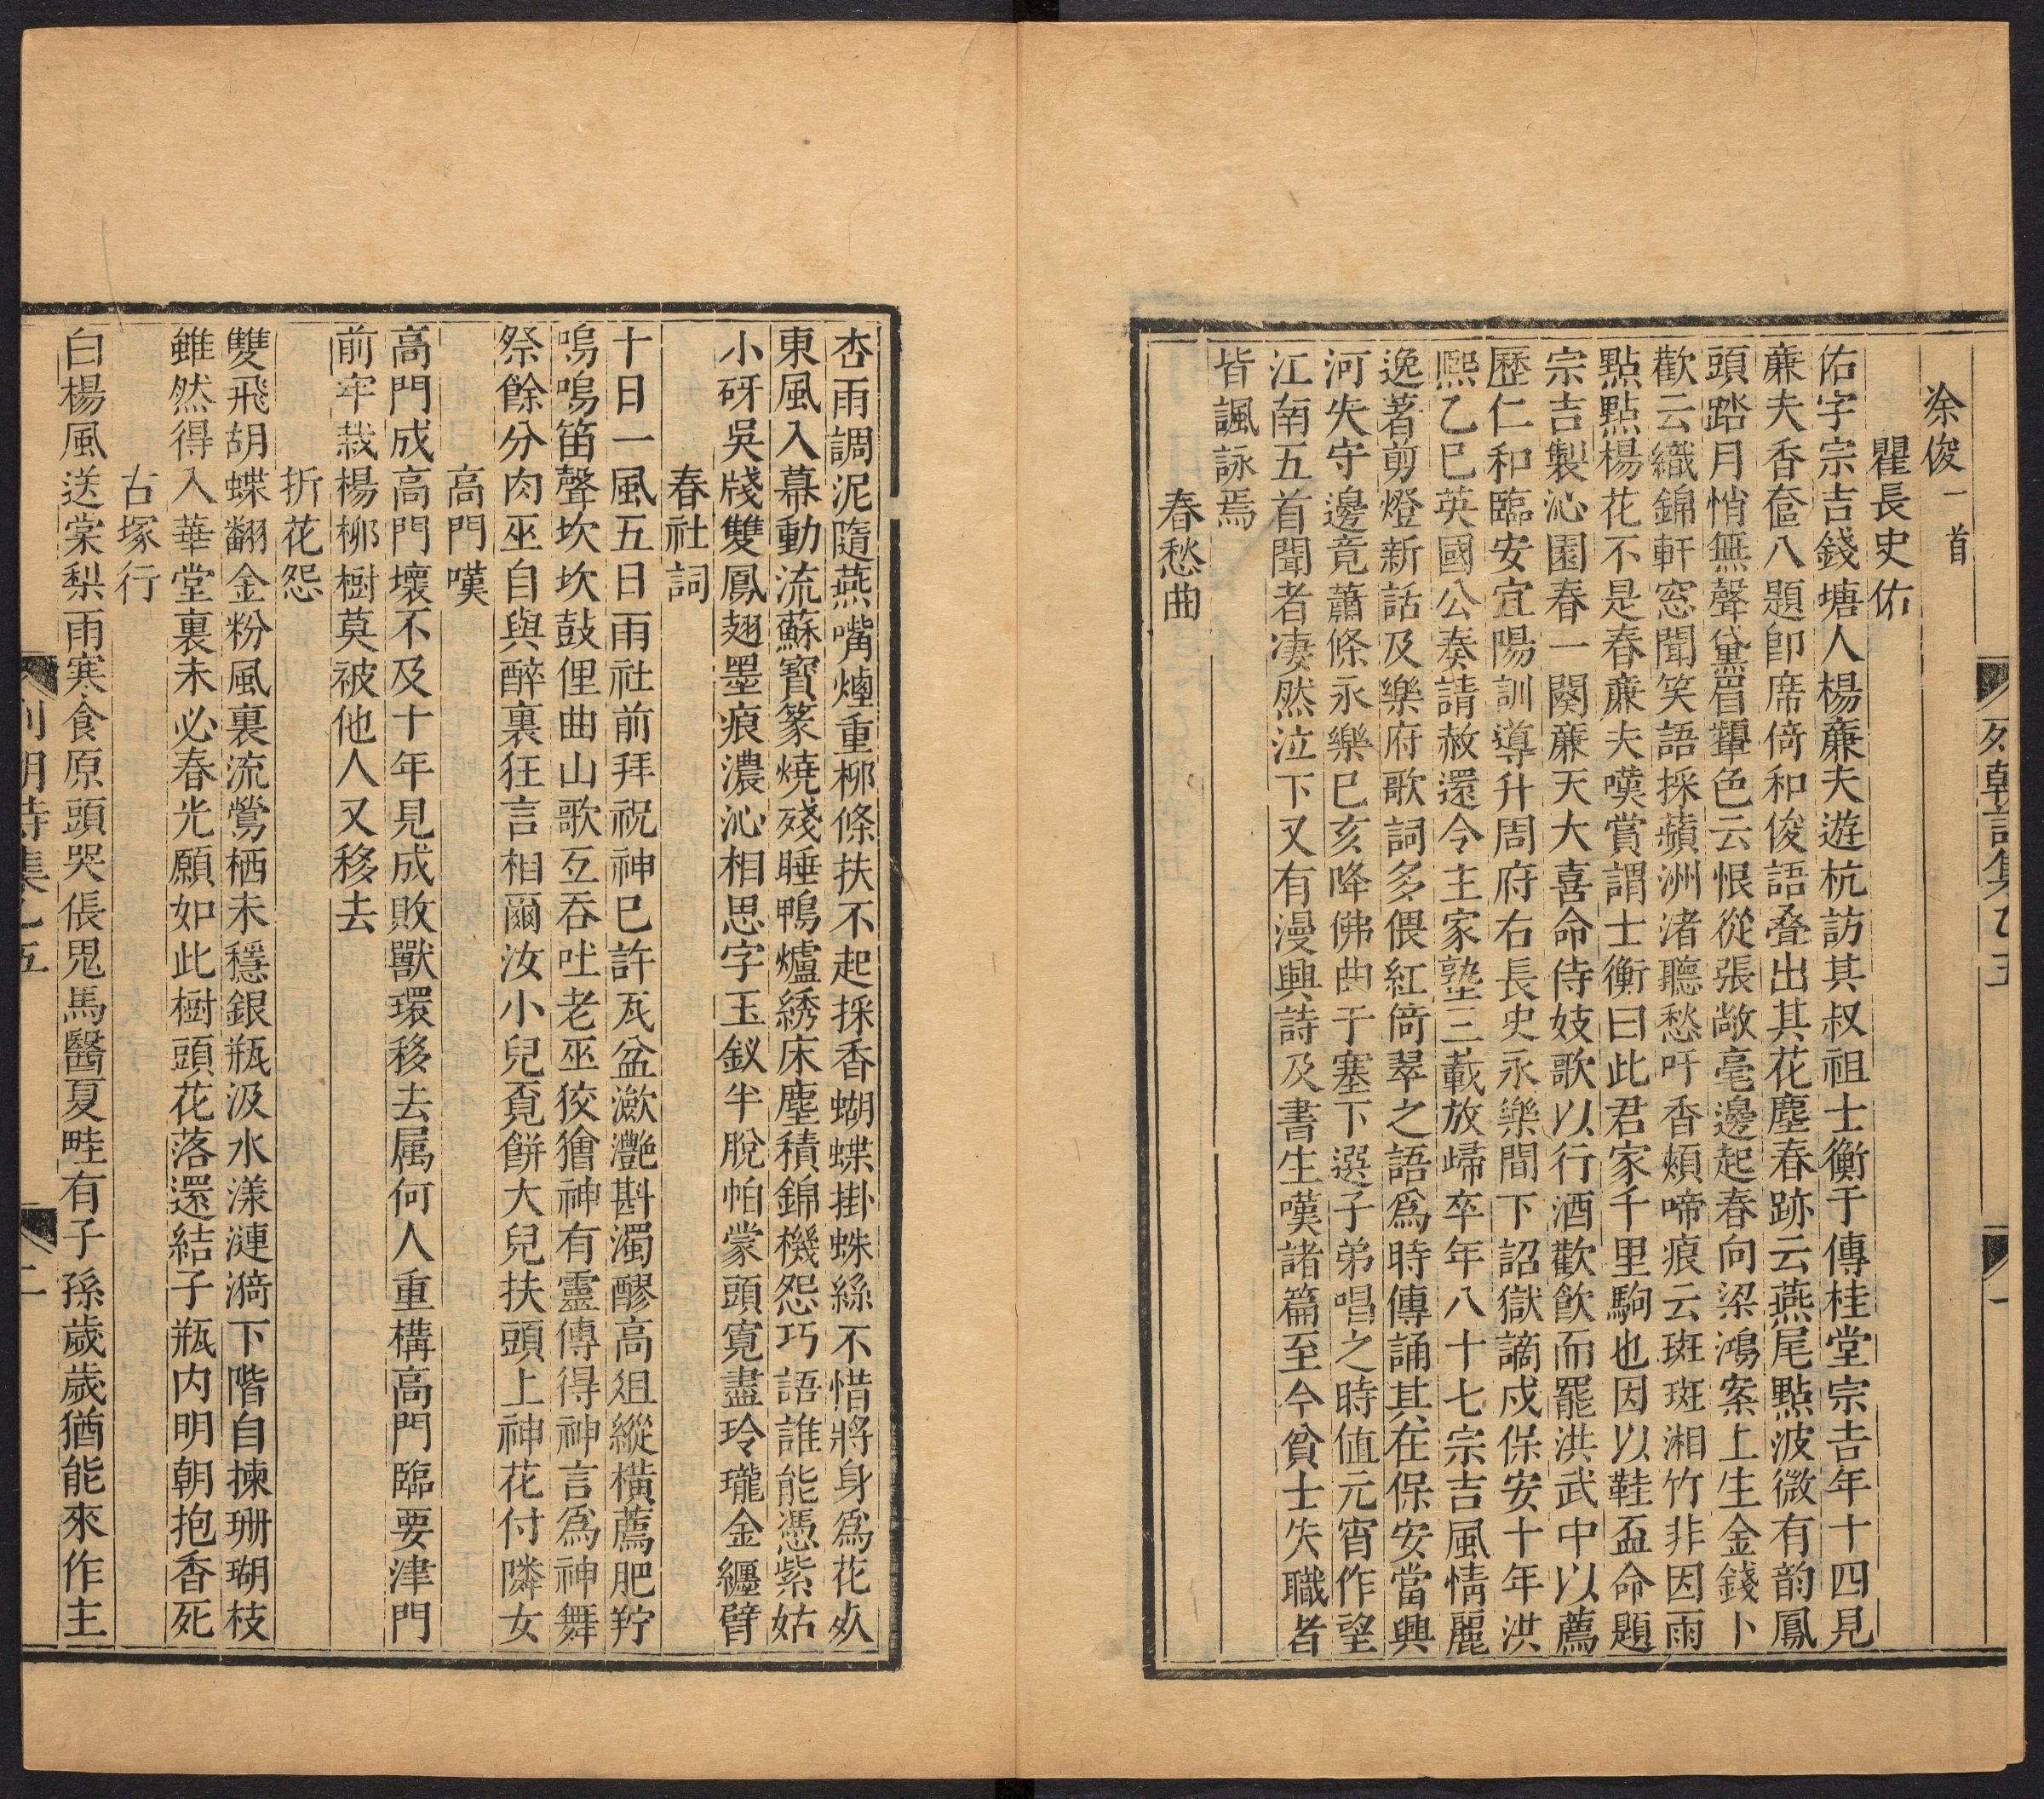 列朝詩集乙五
一
涂俊一首
瞿長史佑
佑字宗吉錢塘人楊㢘夫遊杭訪其叔祖士衡于傳桂堂宗吉年十四見
㢘夫香奩八題卽席倚和俊語叠出其花塵春跡云燕尾點波微有韵鳳
頭踏月悄無聲黛眉顰色云恨從張敞毫邊起春向梁鴻案上生金錢卜
歡云織錦軒窓聞笑語採蘋洲渚聽愁吁香頰啼痕云斑斑湘竹非因雨
點點楊花不是春㢘夫嘆賞謂士衡曰此君家千里駒也因以鞋盃命題
宗吉製沁園春一闋㢘天大喜命侍妓歌以行酒歡飮而罷洪武中以薦
歷仁和臨安宜陽訓導升周府右長史永樂間下詔獄謫戍保安十年洪
熙乙巳英國公奏請赦還令主家塾三載放歸卒年八十七宗吉風情麗
逸著剪燈新話及樂府歌詞多偎紅倚翠之語爲時傳誦其在保安當興
河失守邊竟蕭條永樂巳亥降佛曲于塞下選子弟唱之時値元宵作望
江南五首聞者凄然泣下又有漫興詩及書生嘆諸篇至今貧士失職者
皆諷詠焉
春愁曲
杏雨調泥隨燕嘴煙重栁條扶不起採香蝴蝶掛蛛絲不惜將身爲花死
東風入幕動流蘇寳篆燒殘睡鴨爐綉床塵積錦機怨巧語誰能憑紫姑
小砑吳牋雙鳳翅墨痕濃沁相思字玉釵半脫帕蒙頭寛盡玲瓏金纏臂
春社詞
十日一風五日雨社前拜祝神巳許瓦盆瀲灔斟濁醪高俎縱橫薦肥羜
嗚嗚笛聲坎坎鼓俚曲山歌互呑吐老巫狡獪神有靈傳得神言爲神舞
祭餘分肉巫自與醉裏狂言相爾汝小兒覔餅大兒扶頭上神花付隣女
高門嘆
高門成高門壞不及十年見成敗獸環移去属何人重構高門臨要津門
前牢栽楊栁樹莫被他人又移去
折花怨
雙飛胡蝶翻金粉風裏流鶯栖未穩銀瓶汲水漾漣漪下階自揀珊瑚枝
雖然得入華堂裏未必春光願如此樹頭花落還結子瓶内明朝抱香死
古塚行
白楊風送棠梨雨寒食原頭哭倀鬼馬醫夏畦有子孫歲歲猶能來作主
列朝詩集乙五
二